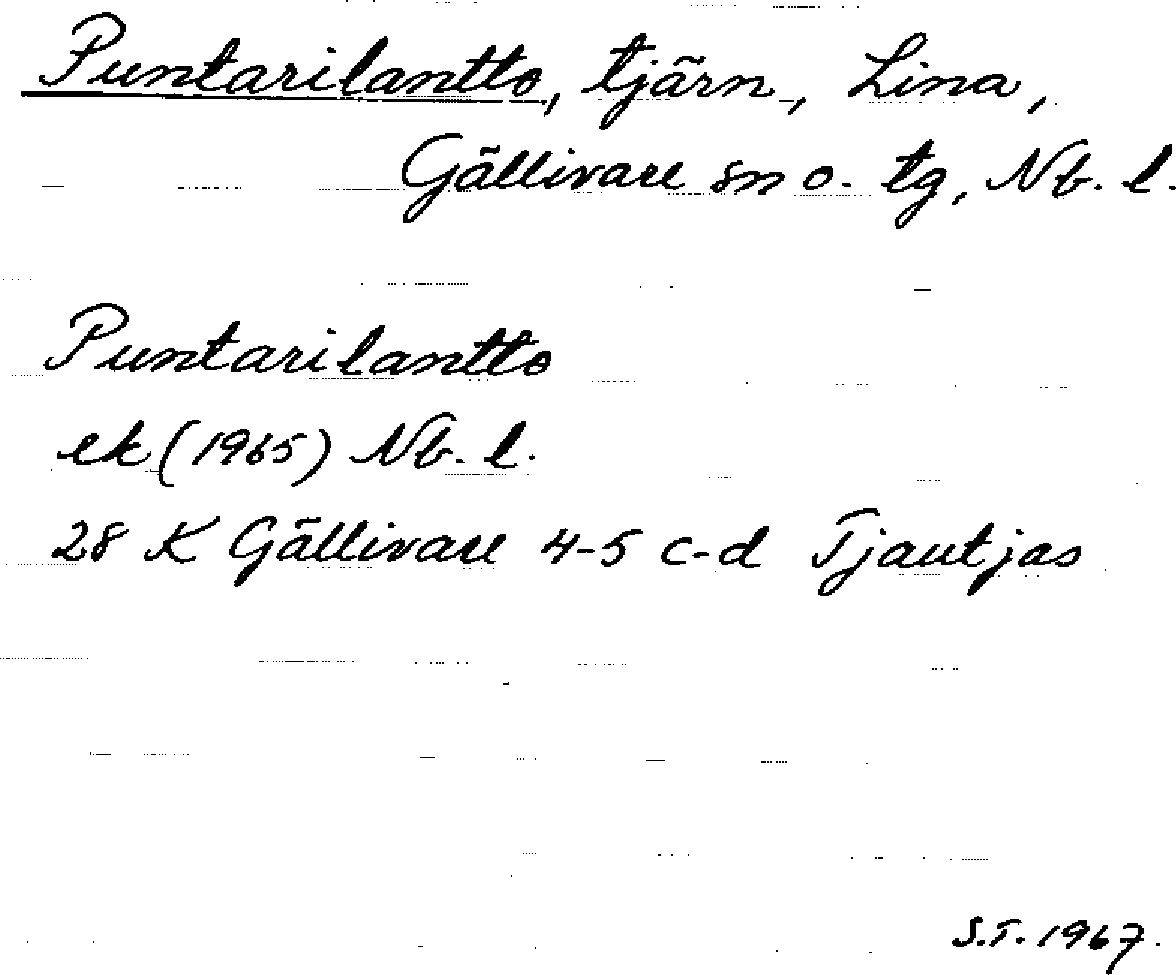 Puntarilantto, tjärn, Lina,
Gällivare sn o. tg, Nb. l.
Puntarilantto
ek (1965) Nb. l.
28 K Gällivare 4-5 c-d Tjautjas
S.T. 1967.